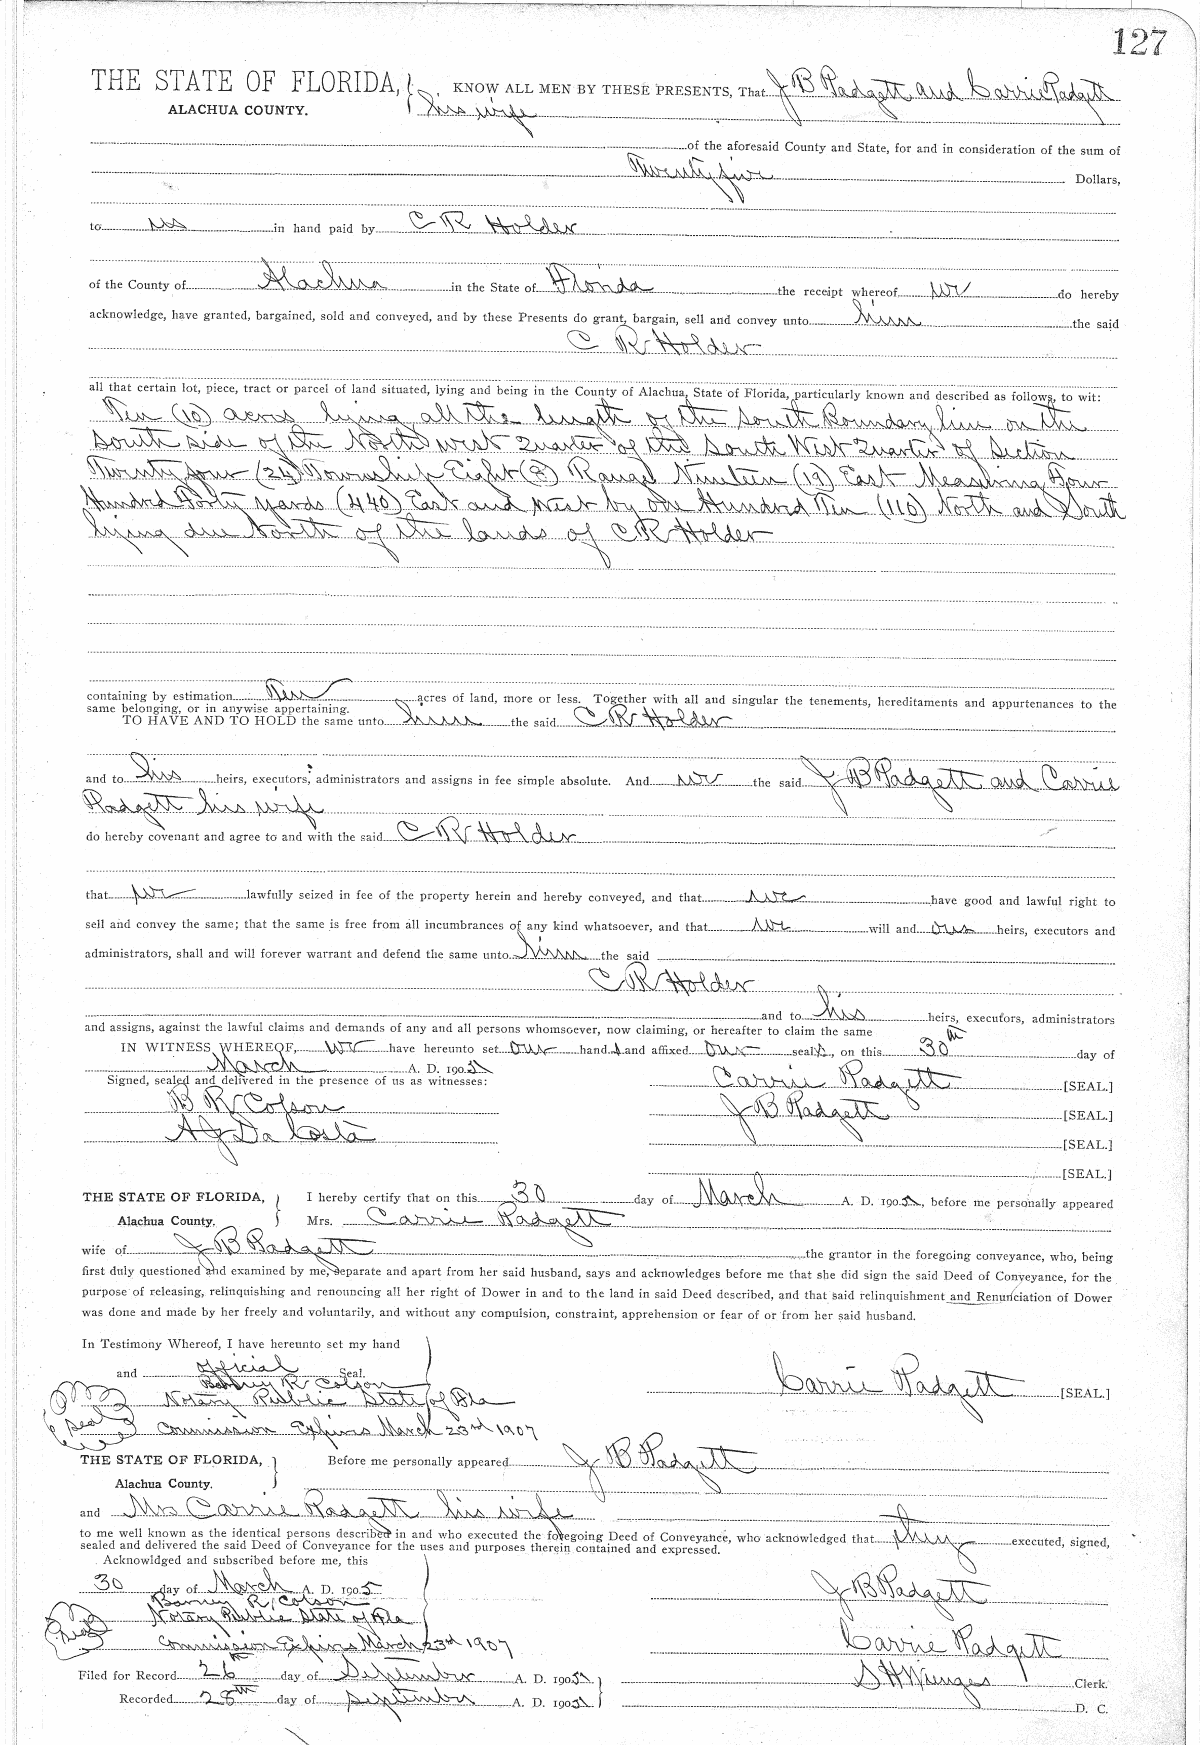 127
THE STATE OF FLORIDA, KNOW ALL MEN BY THESE PRESENTS, That J B Padgett and Carrie Padgett
ALACHUA COUNTY. his wife
of the aforesaid County and State, for and in consideration of the sum of
Twenty five Dollars,
to us in hand paid by C R Holder
of the County of Alachua in the State of Florida the receipt whereof we do hereby
acknowledge, have granted, bargained, sold and conveyed, and by these Presents do grant, bargain, sell and convey unto him the said
C R Holder
all that certain lot, piece, tract or parcel of land situated, lying and being in the County of Alachua, State of Florida, particularly known and described as follows, to wit:
Ten (10) acres lying all the length of the south Boundary line on the
south side of the North west Quarter of the South West Quarter of Section
Twenty four (24) Township Eight (8) Range Nineteen (19) East Measuring Four
Hundred Forty yards (440) East and West by one Hundred Ten (110) North and South
lying due North of the lands of C R Holder
containing by estimation Ten acres of land, more or less. Together with all and singular the tenements, hereditaments and appurtenances to the
same belonging, or in anywise appertaining.
TO HAVE AND TO HOLD the same unto him the said C R Holder
and to his heirs, executors, administrators and assigns in fee simple absolute. And we the said J B Padgett and Carrie
Padgett his wife
do hereby covenant and agree to and with the said C R Holder
that we lawfully seized in fee of the property herein and hereby conveyed, and that we have good and lawful right to
sell and convey the same; that the same is free from all incumbrances of any kind whatsoever, and that we will and our heirs, executors and
administrators, shall and will forever warrant and defend the same unto him the said
C R Holder
and to his heirs, executors, administrators
and assigns, against the lawful claims and demands of any and all persons whomsoever, now claiming, or hereafter to claim the same
IN WITNESS WHEREOF, we have hereunto set our hands and affixed our seals, on this 30th day of
March A. D. 1905
Signed, sealed and delivered in the presence of us as witnesses: Carrie Padgett [SEAL.]
B R Colson J B Padgett [SEAL.]
A J Da Costa [SEAL.]
[SEAL.]
THE STATE OF FLORIDA, I hereby certify that on this 30 day of March A. D. 1905, before me personally appeared
Alachua County. Mrs. Carrie Padgett
wife of J B Padgett the grantor in the foregoing conveyance, who, being
first duly questioned and examined by me, separate and apart from her said husband, says and acknowledges before me that she did sign the said Deed of Conveyance, for the
purpose of releasing, relinquishing and renouncing all her right of Dower in and to the land in said Deed described, and that said relinquishment and Renunciation of Dower
was done and made by her freely and voluntarily, and without any compulsion, constraint, apprehension or fear of or from her said husband.
In Testimony Whereof, I have hereunto set my hand
and official Seal.
Barney R Colson Carrie Padgett [SEAL.]
Notary Public State of Fla
Seal Commission Expires March 23rd 1907
THE STATE OF FLORIDA, Before me personally appeared J B Padgett
Alachua County.
and Mrs Carrie Padgett his wife
to me well known as the identical persons described in and who executed the foregoing Deed of Conveyance, who acknowledged that they executed, signed,
sealed and delivered the said Deed of Conveyance for the uses and purposes therein contained and expressed.
Acknowldged and subscribed before me, this
30 day of March A. D. 1905 J B Padgett
Barney R. Colson
Seal Notary Public State of Fla
Commission Expires March 23rd 1907 Carrie Padgett
Filed for Record 26th day of September A. D. 1905 S H Wienges Clerk.
Recorded 28th day of September A. D. 1905 D. C.